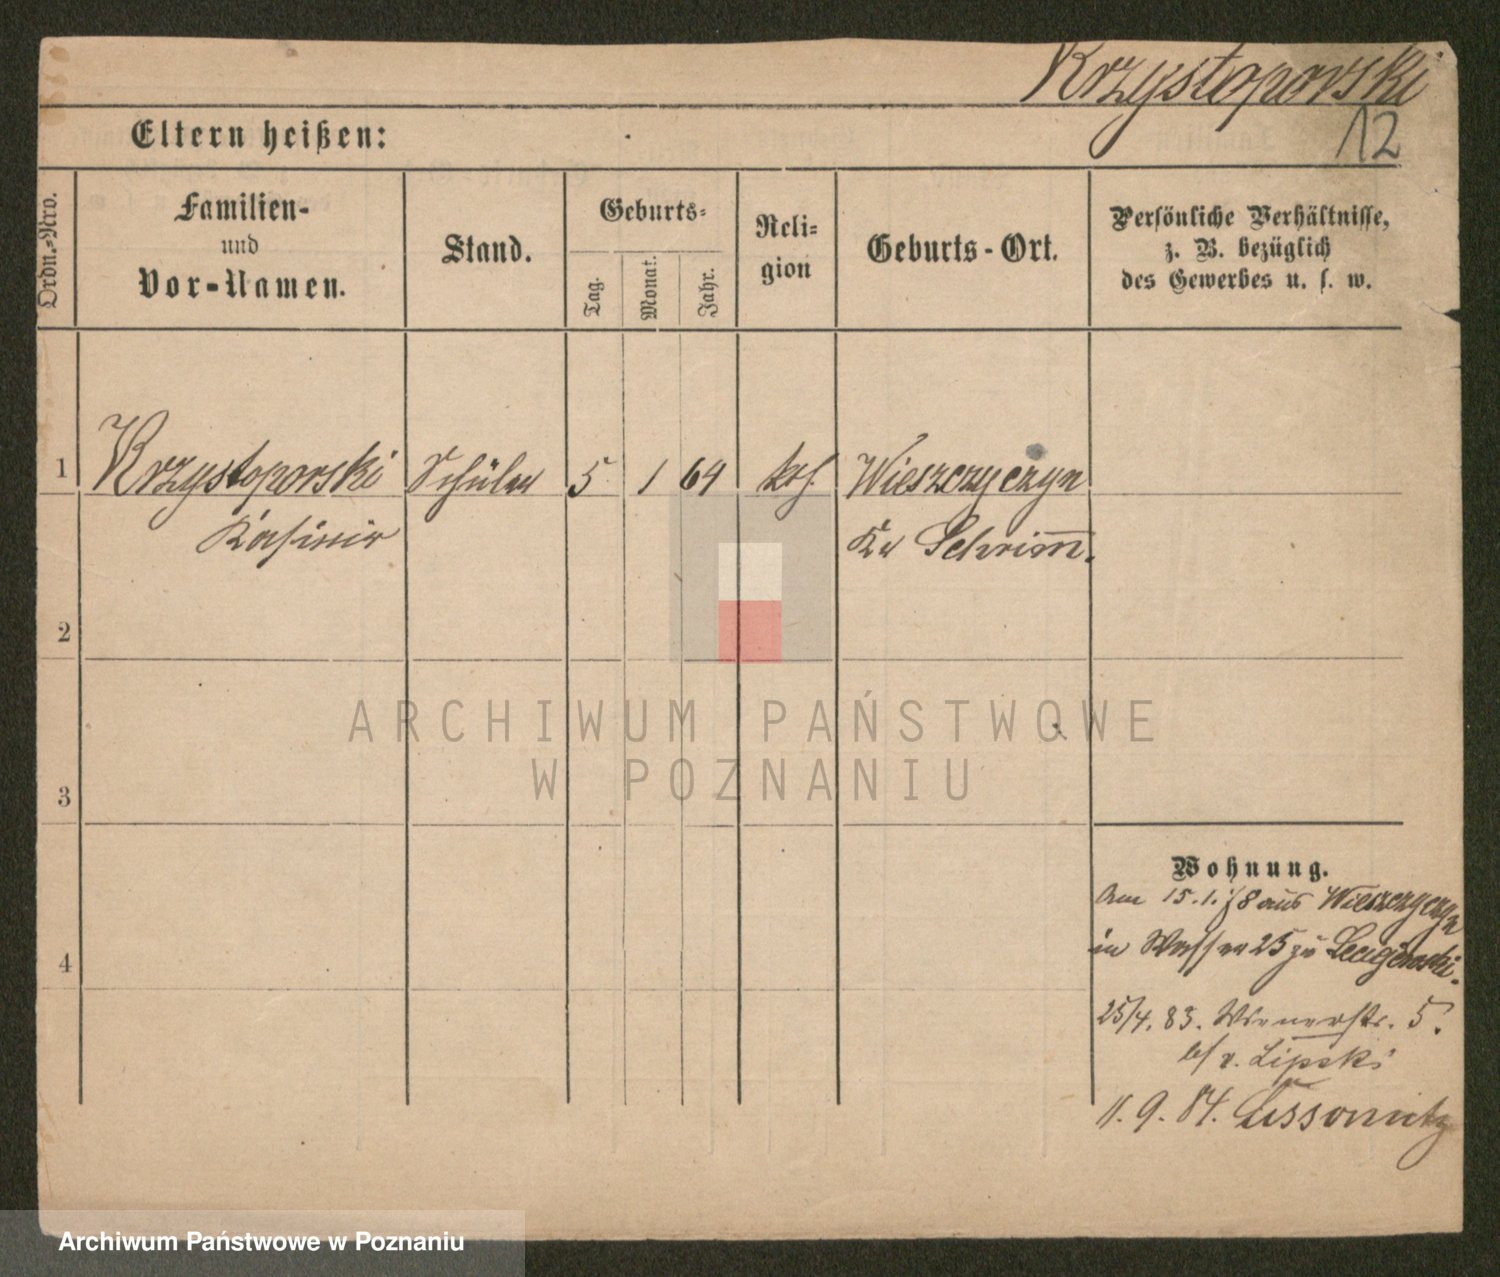 Krzystoporski
12
Eltern heißen:
Ordn.=Nro.
Familien-
und
Vor-Namen.
Stand.
Geburts-
Tag.
Monat.
Jahr.
Reli-
gion
Geburts-Ort.
Persönliche Verhältnisse,
z. B. bezüglich
des Gewerbes u. s. w.
1
Krzystoporski Schüler 5 1 64 kth. Wieszczyczyn
Kasimir Kr Schrimm.
2
3
4
ARCHIWUM PAŃSTWOWE
W POZNANIU
Wohnung.
Am 15.1. 78 aus Wieszczyczyn
in Wasser 25 zu
25/4. 83. Wienerstr. 5.
b/ v. Lipski
11. 9. 84.
Archiwum Państwowe w Poznaniu